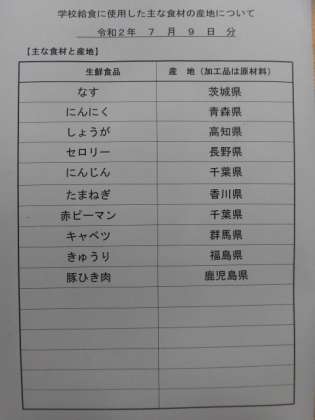 学校給食に使用した主な食材の産地について
令和２年 ７ 月 ９ 日 分
【主な食材と産地】
生鮮食品 産 地（加工品は原材料）
なす 茨城県
にんにく 青森県
しょうが 高知県
セロリー 長野県
にんじん 千葉県
たまねぎ 香川県
赤ピーマン 千葉県
キャベツ 群馬県
きゅうり 福島県
豚ひき肉 鹿児島県